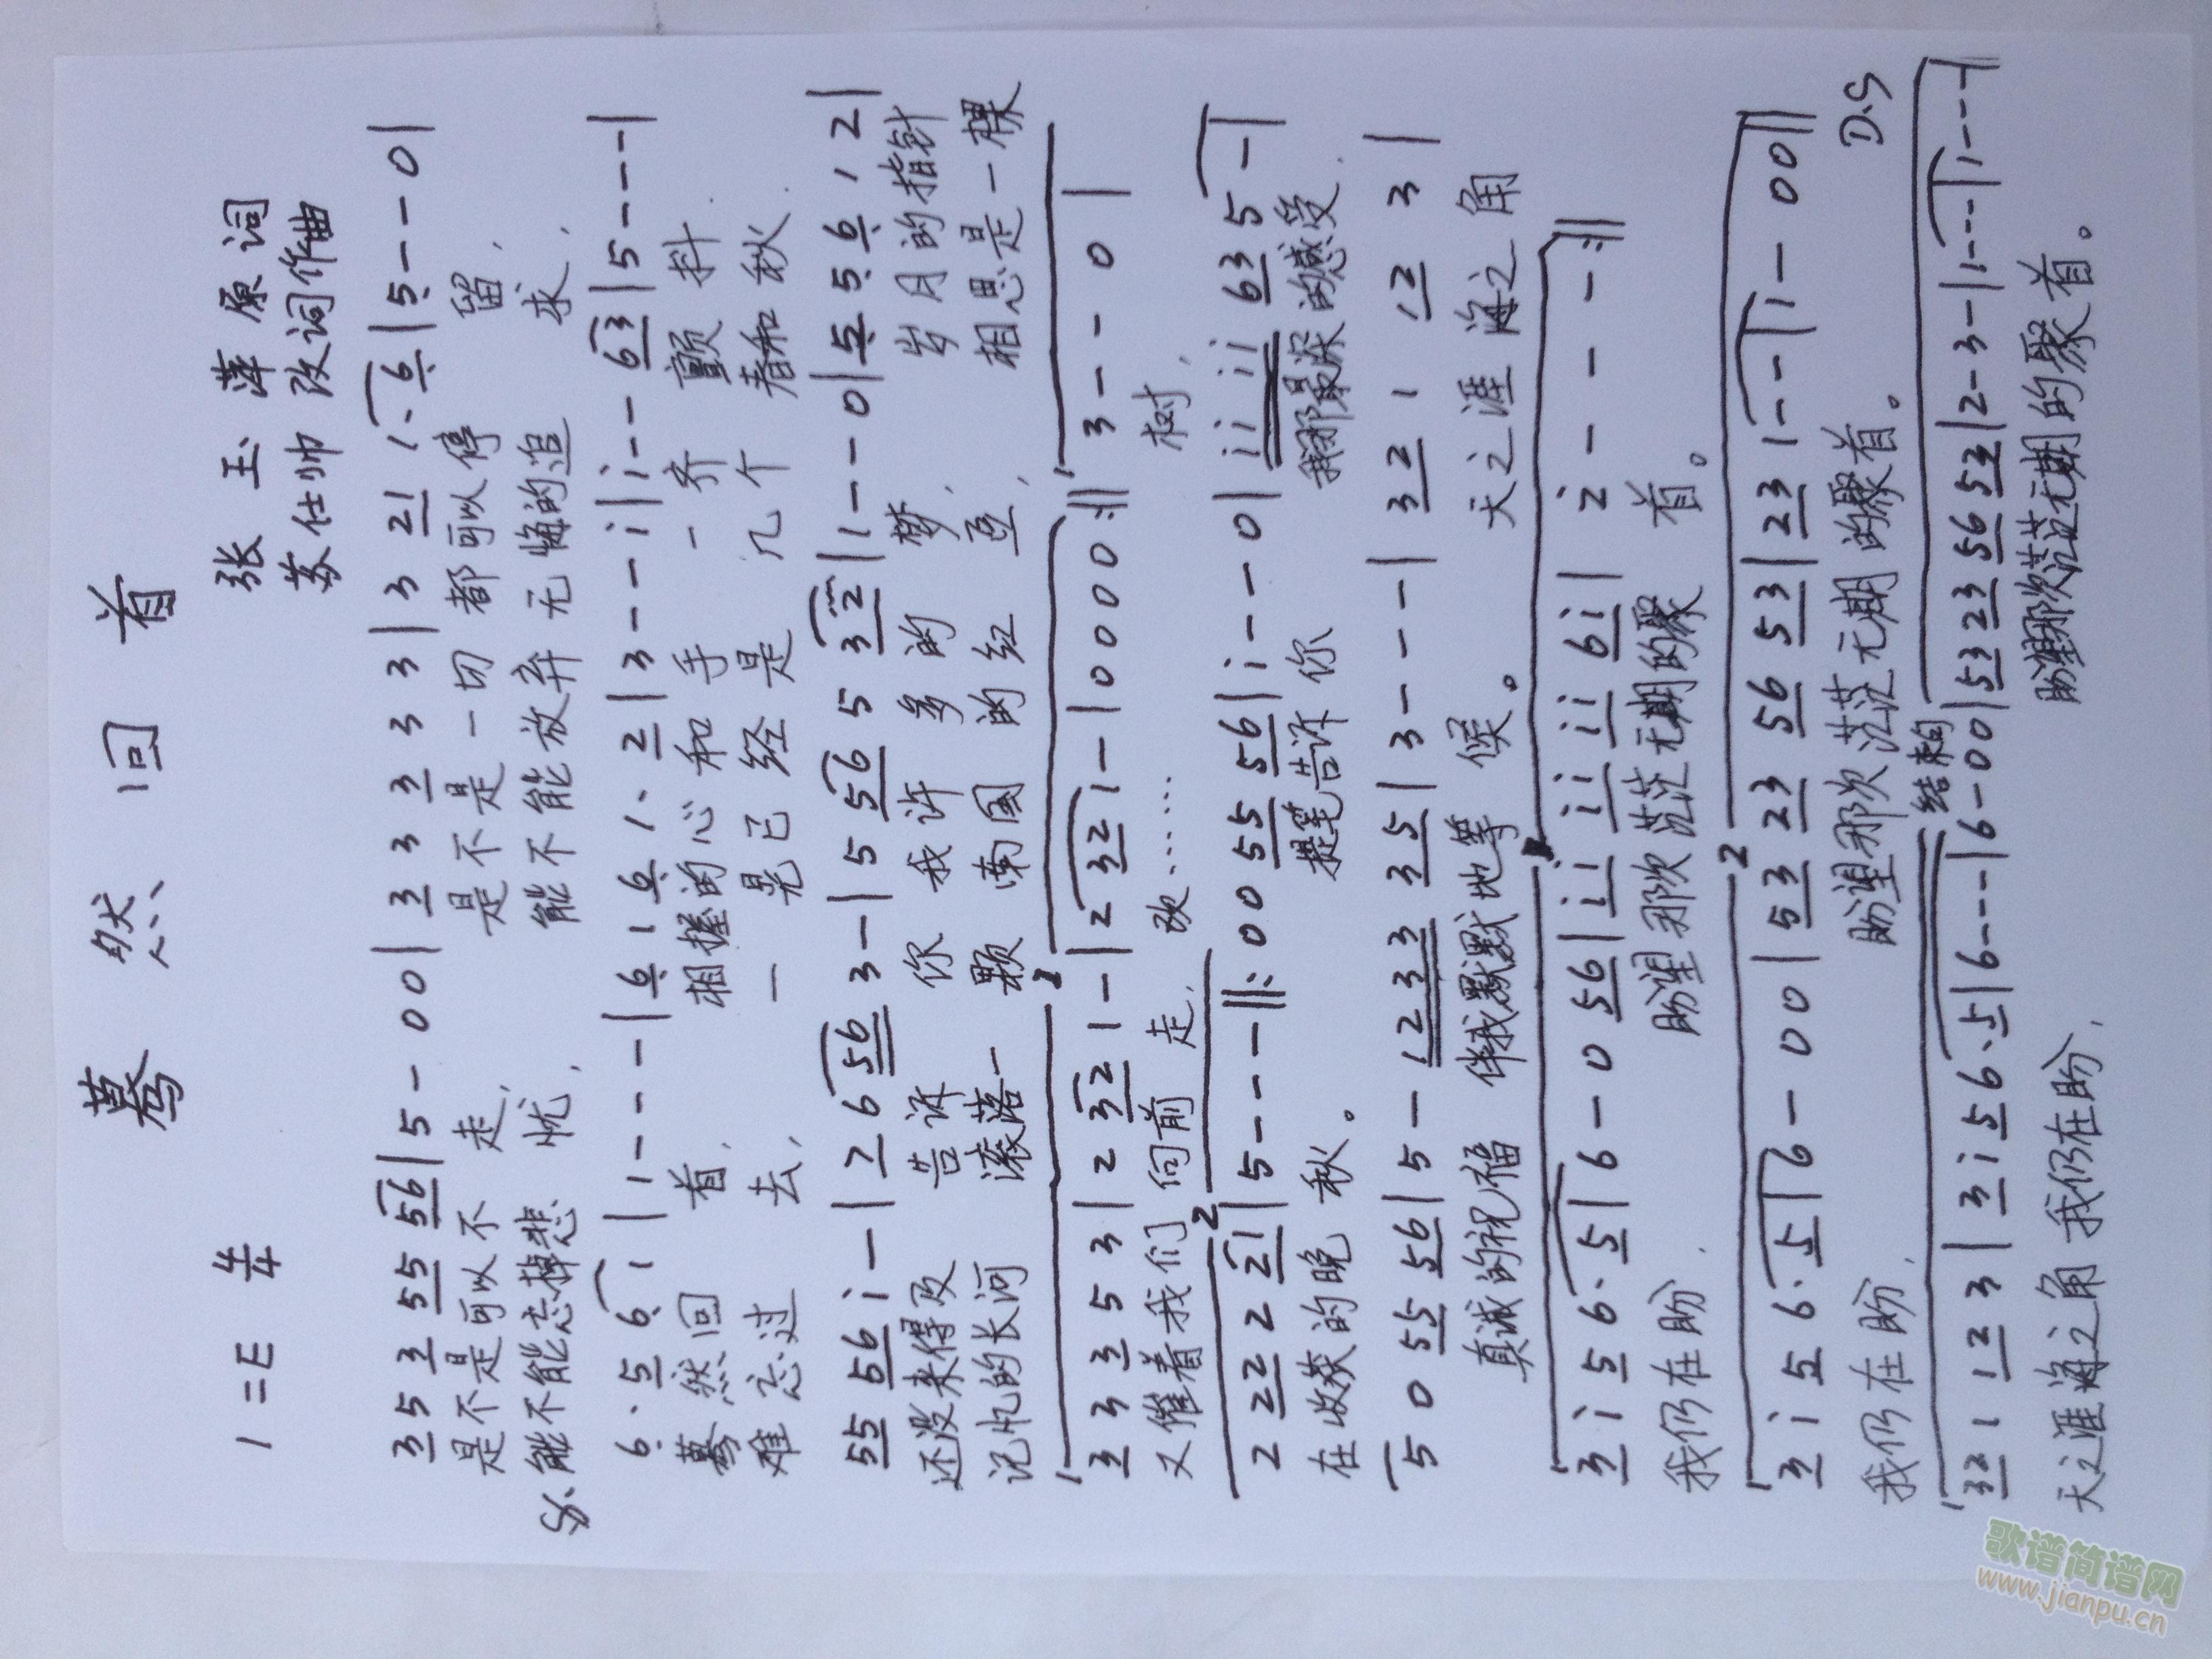 蓦然回首
1=E 4/4
张玉萍原词
苏仕帅 改词作曲
3 5 3 2 55 556 | 5 - 0 0 | 3 3 3 3 3 | 3 21 1. 6 | 5 - - 0 |
是不是可以不走, 是不是一切都可以停留,
能不能忘掉悲忧, 能不能放弃无悔的追求,
6. 5 6 1 | 1 - - - | 6 1 6 1. 2 | 3 - - i | i - - 63 | 5 - - - |
蓦然回首, 相握的心和手一齐颤抖.
难忘过去, 一晃已经是几个春和秋.
55 56 i - | 2 6 56 3 - | 5 56 5 32 | 1 - - 0 | 5 5 6 1 2 |
还没来得及告诉你我许多的梦, 岁月的指针
记忆的长河滚落一颗南国的红豆, 相思是一棵
3 3 3 5 3 | 2 32 1 - | 2 32 1 - | 0 0 0 0 :|| 3 - - 0 |
又催着我们向前走, 改…… 树,
2 2 2 2 21 | 5 - - - ||: 0 0 55 56 | i - - 0 | ii ii 63 5 - |
在收获的晚秋。 提笔告诉你 我那最深的感受.
5 0 55 56 | 5 - 1233 35 | 3 - - - | 32 1 12 3 |
真诚的祝福 伴我默默地等候。 天之涯海之角
3 i 5 6. 5 | 6 - 0 56 | ii ii ii 6i | 2 - - - :||
我们在盼. 盼望那次茫茫无期的聚首。
3 i 5 6. 5 | 6 - 0 0 | 53 23 56 53 | 23 1 - - | 1 - 00 ||
我仍在盼, 盼望那次茫茫无期的聚首。 D.S
结束句
32 1 12 3 | 3 i 5 6. 5 | 6 - - - | 6 - 0 0 | 53 23 56 53 | 2 - 3 - | 1 - - - | 1 - - - |
天之涯海之角 我仍在盼, 盼望那次茫茫无期的聚首。
歌谱简谱网
www.jianpu.cn